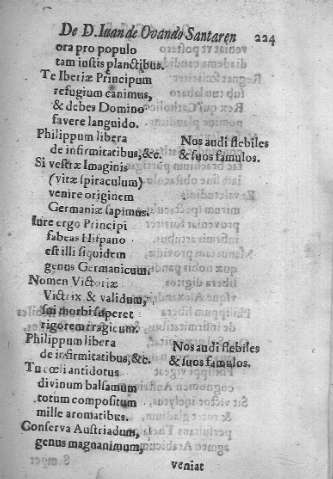 De D. Iuan de Ovando Santaren 224
ora pro populo
tam iustis planctibus.
Te Iberiæ Principum
refugium canimus,
& debes Domino
favere languido.
Philippum libera Nos audi flebiles
de infirmitatibus,&c. & suos famulos.
Si vestræ Imaginis
(vitæ spiraculum)
venire originem
Germaniæ sapimus.
Iure ergo Principi
faveas Hispano
est illi siquidem
genus Germanicum.
Nomen Victoriæ
Victrix & validum,
sui morbi superet
rigorem tragicum.
Philippum libera Nos audi flebiles
de infirmitatibus,&c. & suos famulos.
Tu cœli antidotus
divinum balsamum
totum compositum
mille aromatibus.
Conserva Austriadum,
genus magnanimum,
veniat